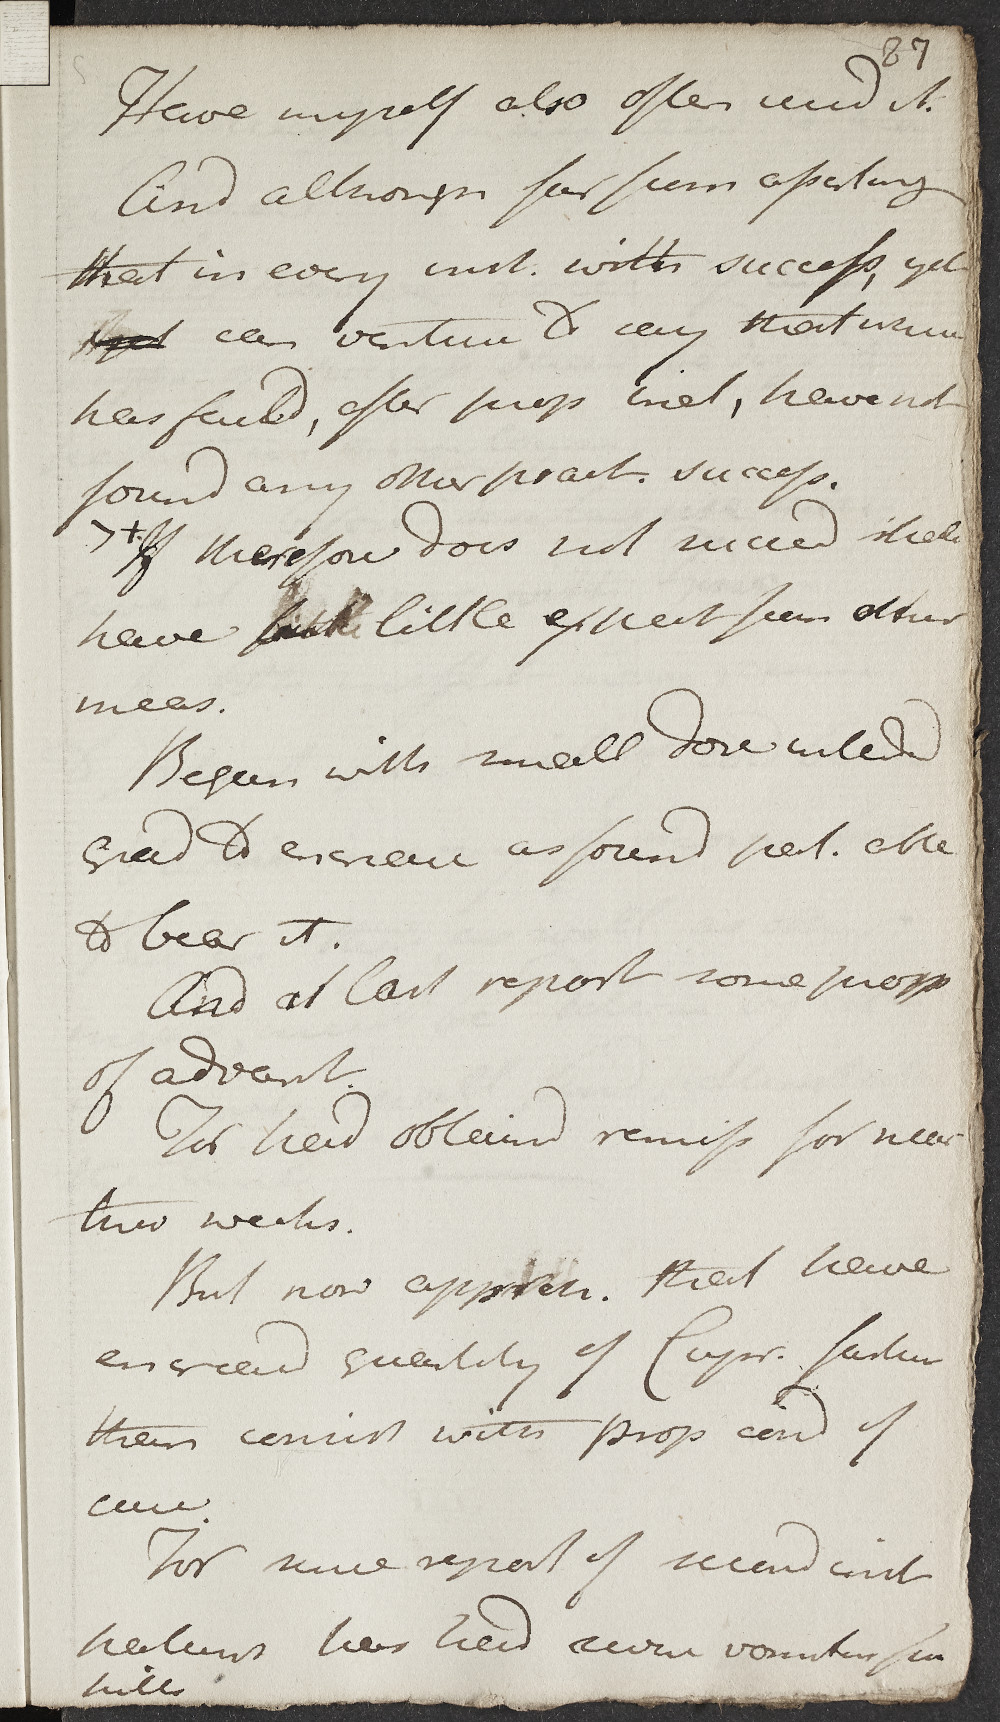 87
Have myself also often used it.
And although far from asserting
that in every inst. with success, yet
can venture to say that when
has faild, after prop trial, have not
found any other pract. success.
+ If therefore does not succeed shall
have little expect from other
meas.
Began with small dose intend
grad to encrease as found pat. able
to bear it.
And at last report some prosp
of advant.
For had obtaind remiss for near
two weeks.
But now appreh. that have
encreasd quantity of Cupr. farther
than consist with prop cond of
cure.
For since report of second inst
patient has had severe vomiting from
pills